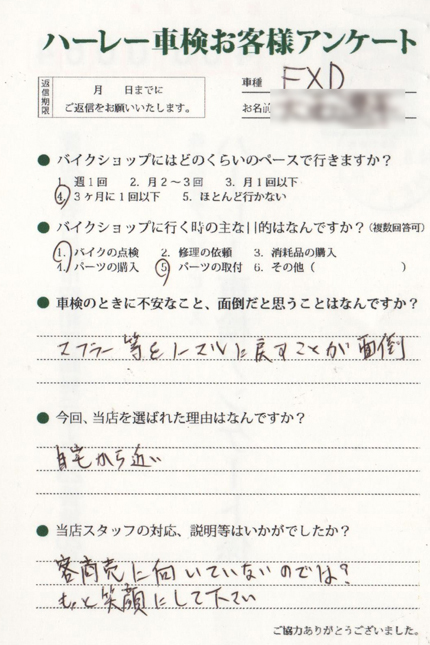 ハーレー車検お客様アンケート
返信期限
月 日までに
ご返信をお願いいたします。
車種 FXD
お名前
● バイクショップにはどのくらいのペースで行きますか？
1. 週1回 2. 月2～3回 3. 月1回以下
4. 3ヶ月に1回以下 5. ほとんど行かない
● バイクショップに行く時の主な目的はなんですか？（複数回答可）
1. バイクの点検 2. 修理の依頼 3. 消耗品の購入
4. パーツの購入 5. パーツの取付 6. その他（ ）
● 車検のときに不安なこと、面倒だと思うことはなんですか？
マフラー等をノーマルに戻すことが面倒
● 今回、当店を選ばれた理由はなんですか？
自宅から近い
● 当店スタッフの対応、説明等はいかがでしたか？
客商売に向いていないのでは？
もっと笑顔にして下さい
ご協力ありがとうございました。